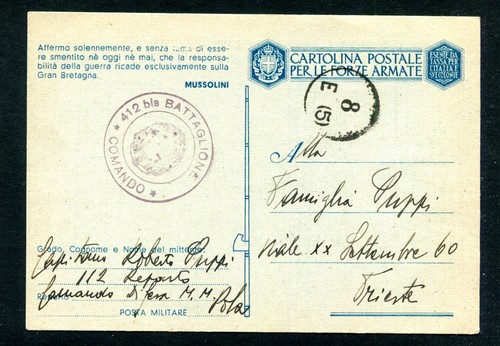 Affermo solennemente, e senza tema di esse-
re smentito nè oggi nè mai, che la responsa-
bilità della guerra ricade esclusivamente sulla
Gran Bretagna.
MUSSOLINI
CARTOLINA POSTALE
PER LE FORZE ARMATE
ESENTE DA
TASSA PER
L'ITALIA E
SUE COLONIE
★ 412 bis BATTAGLIONE ★
COMANDO
8
E
(5)
Alla
Famiglia Puppi
Viale XX Settembre 60
Trieste
Grado, Cognome e Nome del mittente
Capitano Roberto Puppi
112 Reparto
Comando Difesa M. M.
Pola
POSTA MILITARE